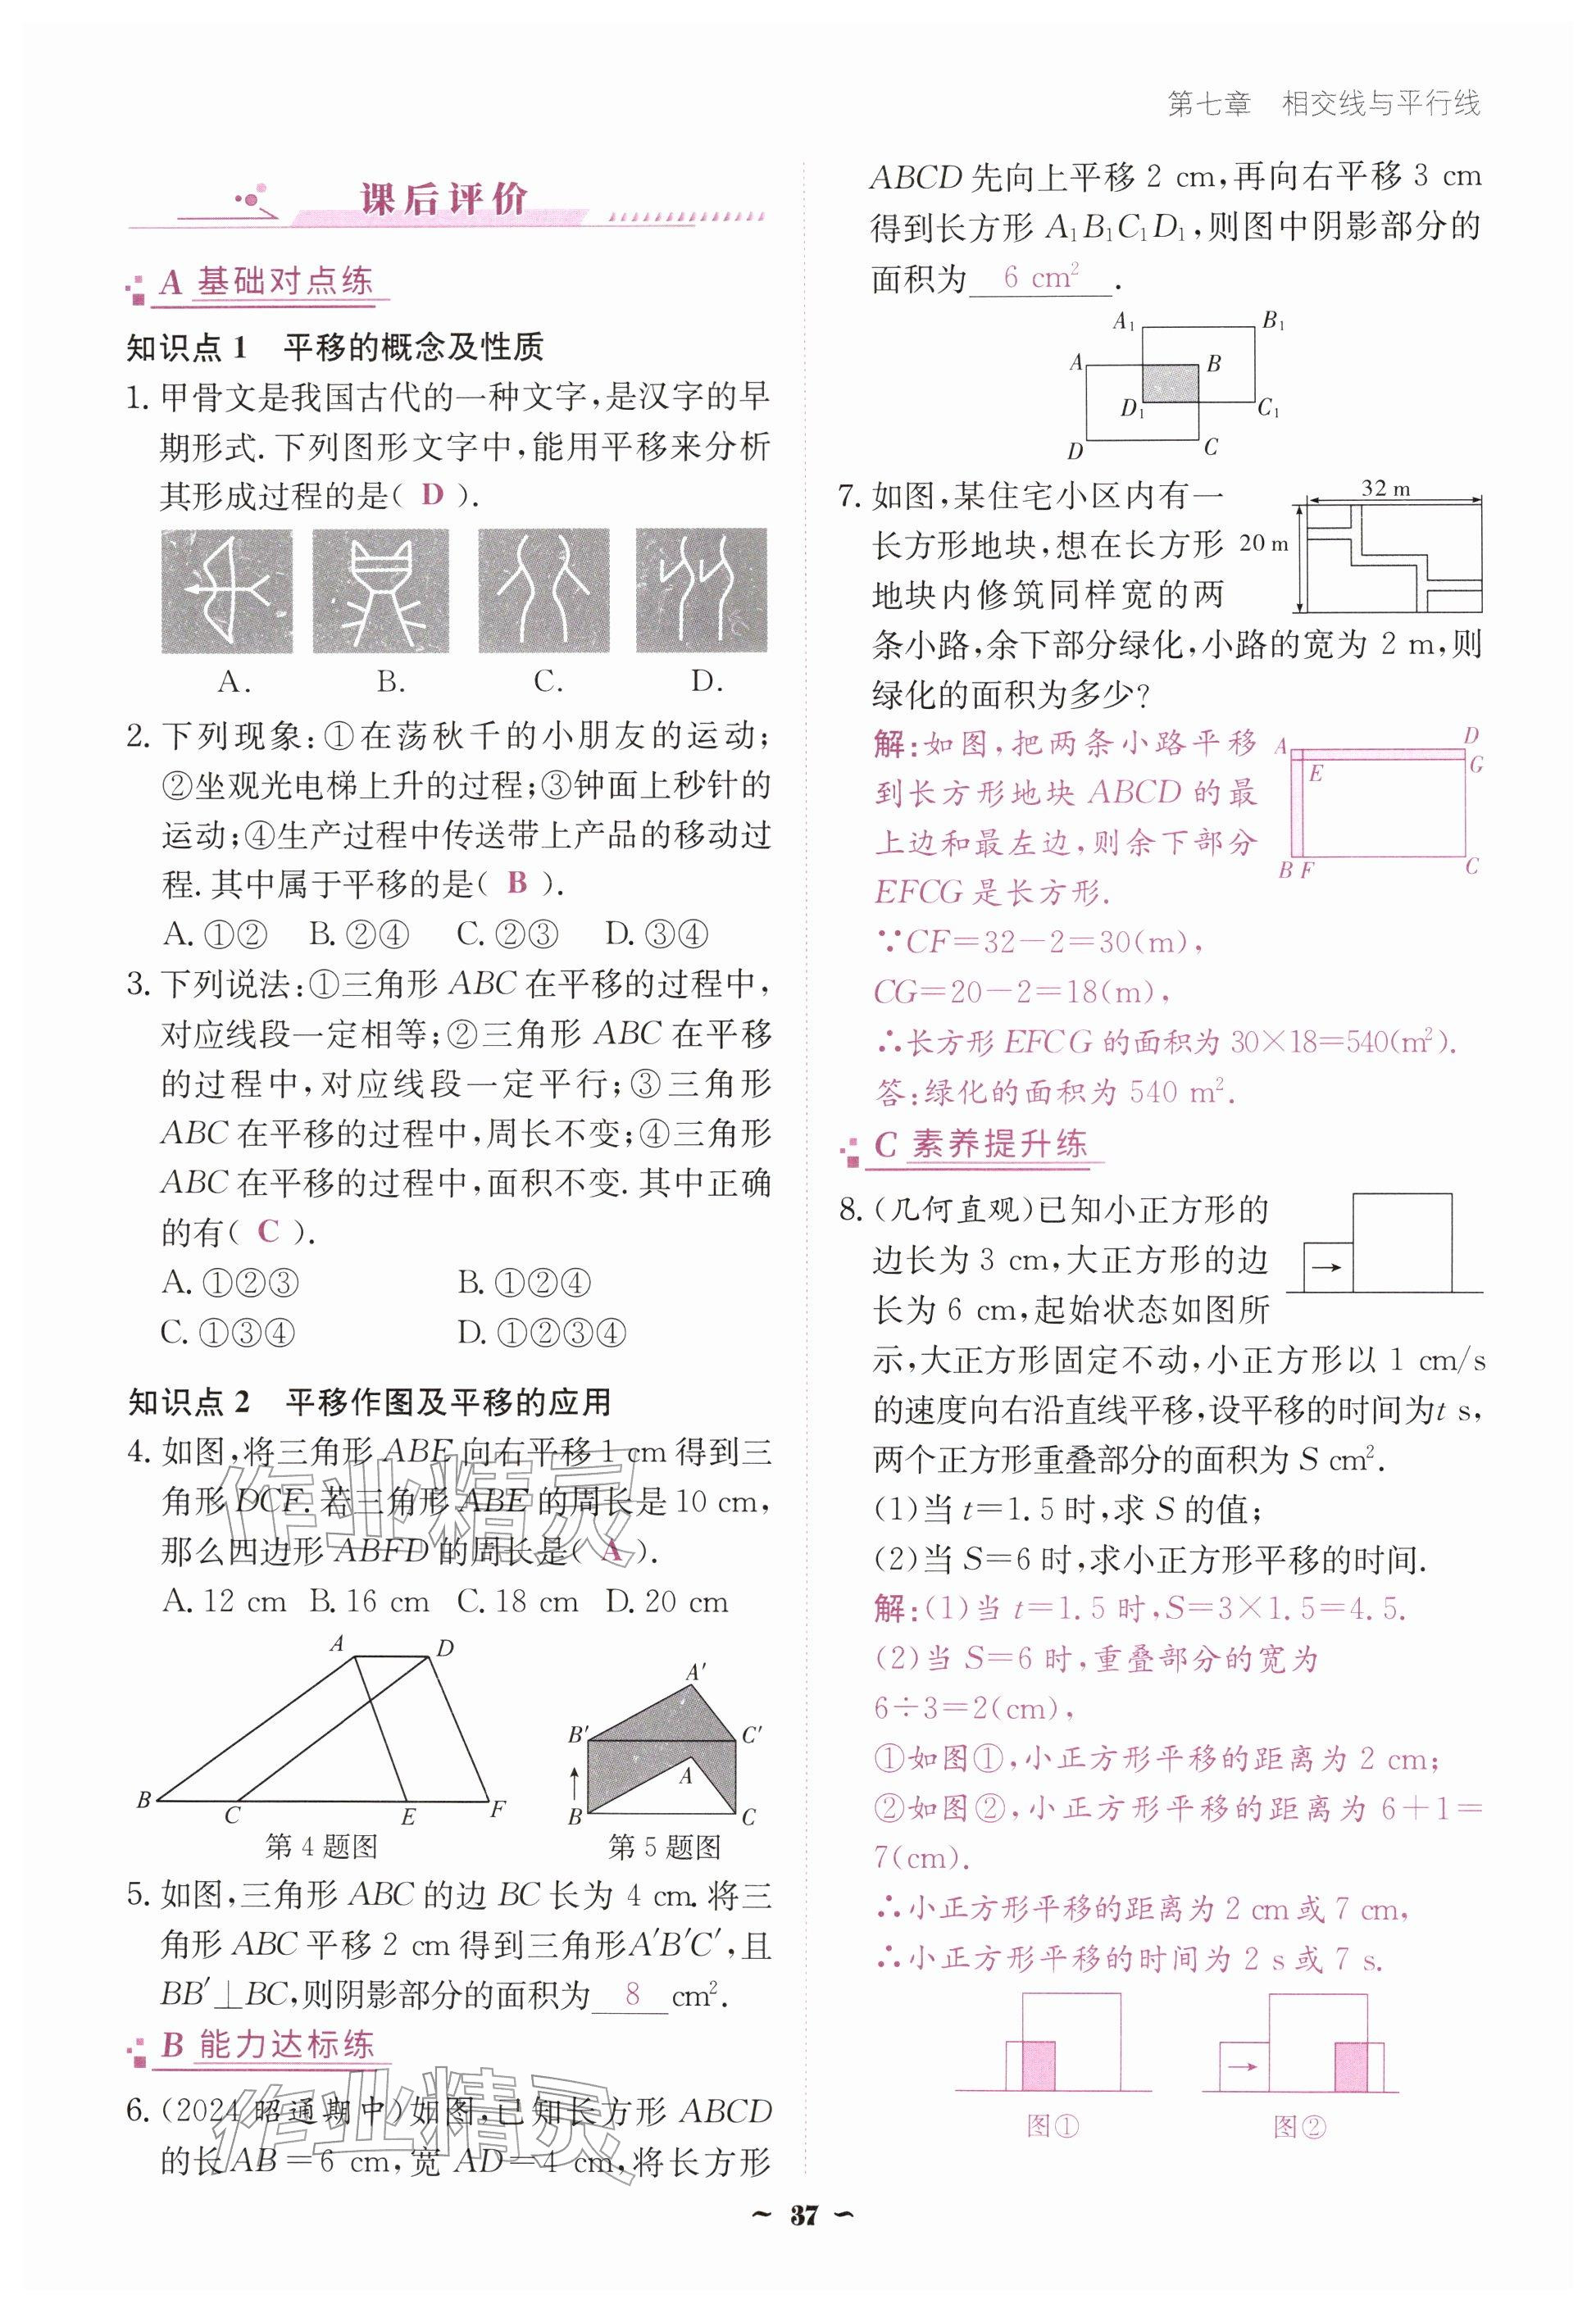 第七章 相交线与平行线
课后评价
A 基础对点练
知识点 1 平移的概念及性质
1. 甲骨文是我国古代的一种文字,是汉字的早
期形式. 下列图形文字中,能用平移来分析
其形成过程的是( D ).
A. B. C. D.
2. 下列现象:①在荡秋千的小朋友的运动;
②坐观光电梯上升的过程;③钟面上秒针的
运动;④生产过程中传送带上产品的移动过
程. 其中属于平移的是( B ).
A. ①② B. ②④ C. ②③ D. ③④
3. 下列说法:①三角形 ABC 在平移的过程中,
对应线段一定相等;②三角形 ABC 在平移
的过程中,对应线段一定平行;③三角形
ABC 在平移的过程中,周长不变;④三角形
ABC 在平移的过程中,面积不变. 其中正确
的有( C ).
A. ①②③ B. ①②④
C. ①③④ D. ①②③④
知识点 2 平移作图及平移的应用
4. 如图,将三角形 ABE 向右平移 1 cm 得到三
角形 DCF. 若三角形 ABE 的周长是 10 cm,
那么四边形 ABFD 的周长是( A ).
A. 12 cm B. 16 cm C. 18 cm D. 20 cm
A D
B C E F
第 4 题图
A′
B′ C′
A
B C
第 5 题图
5. 如图,三角形 ABC 的边 BC 长为 4 cm. 将三
角形 ABC 平移 2 cm 得到三角形A′B′C′,且
BB′⊥BC,则阴影部分的面积为 8 cm².
B 能力达标练
6. (2024 昭通期中)如图,已知长方形 ABCD
的长 AB=6 cm,宽 AD=4 cm,将长方形
作业精灵
作业精灵
ABCD 先向上平移 2 cm,再向右平移 3 cm
得到长方形 A₁B₁C₁D₁,则图中阴影部分的
面积为 6 cm² .
A₁ B₁
A B
D₁ C₁
D C
7. 如图,某住宅小区内有一
长方形地块,想在长方形
地块内修筑同样宽的两
条小路,余下部分绿化,小路的宽为 2 m,则
绿化的面积为多少?
32 m
20 m
解:如图,把两条小路平移
到长方形地块 ABCD 的最
上边和最左边,则余下部分
EFCG 是长方形.
A D
E G
B F C
∵CF=32-2=30(m),
CG=20-2=18(m),
∴长方形 EFCG 的面积为 30×18=540(m²).
答:绿化的面积为 540 m².
C 素养提升练
8. (几何直观)已知小正方形的
边长为 3 cm,大正方形的边
长为 6 cm,起始状态如图所
示,大正方形固定不动,小正方形以 1 cm/s
的速度向右沿直线平移,设平移的时间为t s,
两个正方形重叠部分的面积为 S cm².
(1)当 t=1.5 时,求 S 的值;
(2)当 S=6 时,求小正方形平移的时间.
解:(1)当 t=1.5 时,S=3×1.5=4.5.
(2)当 S=6 时,重叠部分的宽为
6÷3=2(cm),
①如图①,小正方形平移的距离为 2 cm;
②如图②,小正方形平移的距离为 6+1=
7(cm).
∴小正方形平移的距离为 2 cm 或 7 cm,
∴小正方形平移的时间为 2 s 或 7 s.
图① 图②
~ 37 ~